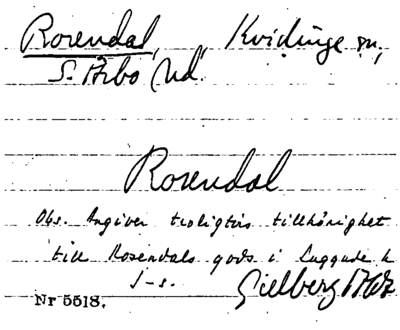 Rosendal, Kvidinge sn,
S. Åsbo hd.
Rosendal
Obs. Angiver troligtvis tillhörighet
till Rosendals gods i Luggude h
Gillberg
Nr 5518.